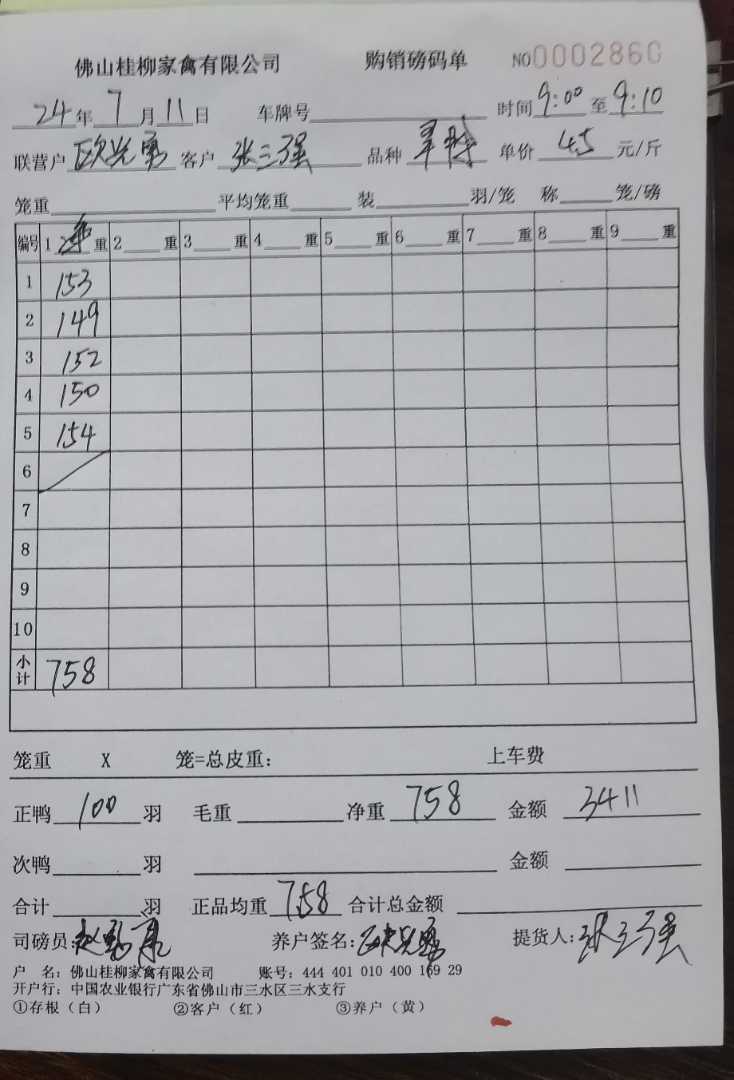 佛山桂柳家禽有限公司 购销磅码单 NO0002860
24年7月11日 车牌号 时间9:00至9:10
联营户 欧光勇 客户 张三强 品种 单价 4.5 元/斤
笼重 平均笼重 装 羽/笼 称 笼/磅
编号 1 净重 2 重 3 重 4 重 5 重 6 重 7 重 8 重 9 重
1 153
2 149
3 152
4 150
5 154
6
7
8
9
10
小计 758
笼重 X 笼=总皮重: 上车费
正鸭 100 羽 毛重 净重 758 金额 3411
次鸭 羽 金额
合计 羽 正品均重 7.58 合计总金额
司磅员: 养户签名: 欧光勇 提货人: 张三强
户 名: 佛山桂柳家禽有限公司 账号: 444 401 010 400 169 29
开户行: 中国农业银行广东省佛山市三水区三水支行
①存根(白) ②客户(红) ③养户(黄)